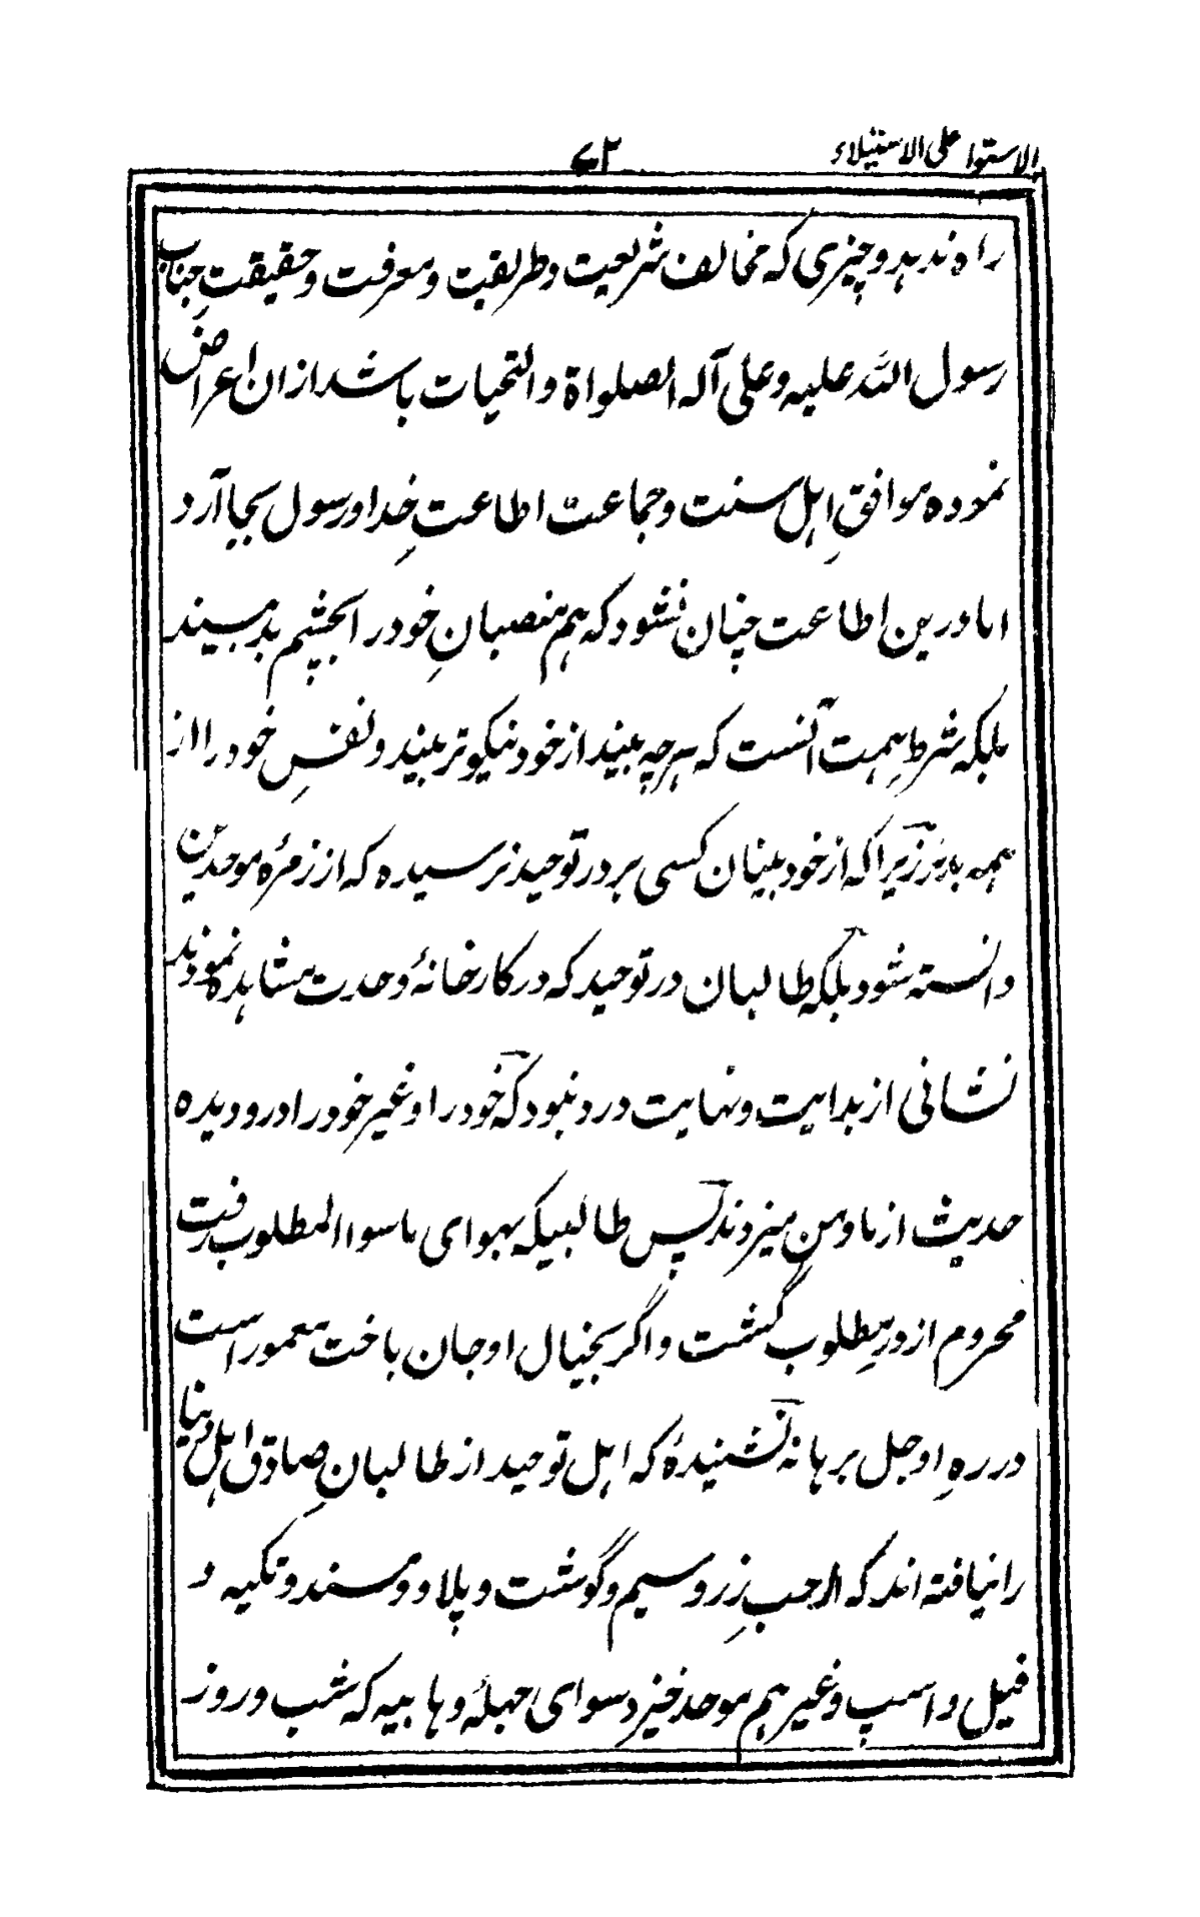 الاستوا علی الاستیلاء ۷۲
راه ندهد و چیزی که مخالف شریعت و طریقت و معرفت و حقیقتِ جناب
رسول الله علیه و علی آله الصلواة والتحیات باشد ازان اعراض
نموده موافقِ اهل سنت و جماعت اطاعتِ خدا و رسول بجا آرد
اما درین اطاعت چنان نشود که هم منصبانِ خود را بچشم بد ببیند
بلکه شرطِ همت آنست که هرچه بیند از خود نیکوتر بیند و نفسِ خود را از
همه بدتر زیرا که از خود بینان کسی بر در توحید نرسیده که از زمرهٔ موحدین
دانسته شود بلکه طالبان در توحید که در کارخانهٔ وحدت مشاهده نمودند
نشانی از بدایت و نهایت درو نبود که خود را و غیر خود را درو دیده
حدیث از ما و من میزدند پس طالبیکه بهوای ماسوا المطلوب رفت
محروم از درِ مطلوب گشت و اگر بخیال او جان باخت معمور است
در رهِ او جل برهانه نشنیدهٔ که اهل توحید از طالبانِ صادق اهل دنیا
را نیافته اند که از حبِ زر و سیم و گوشت و پلاو و مسند و تکیه و
فیل و اسپ و غیر هم موحد خیزد سوای جهلهٔ وهابیه که شب و روز